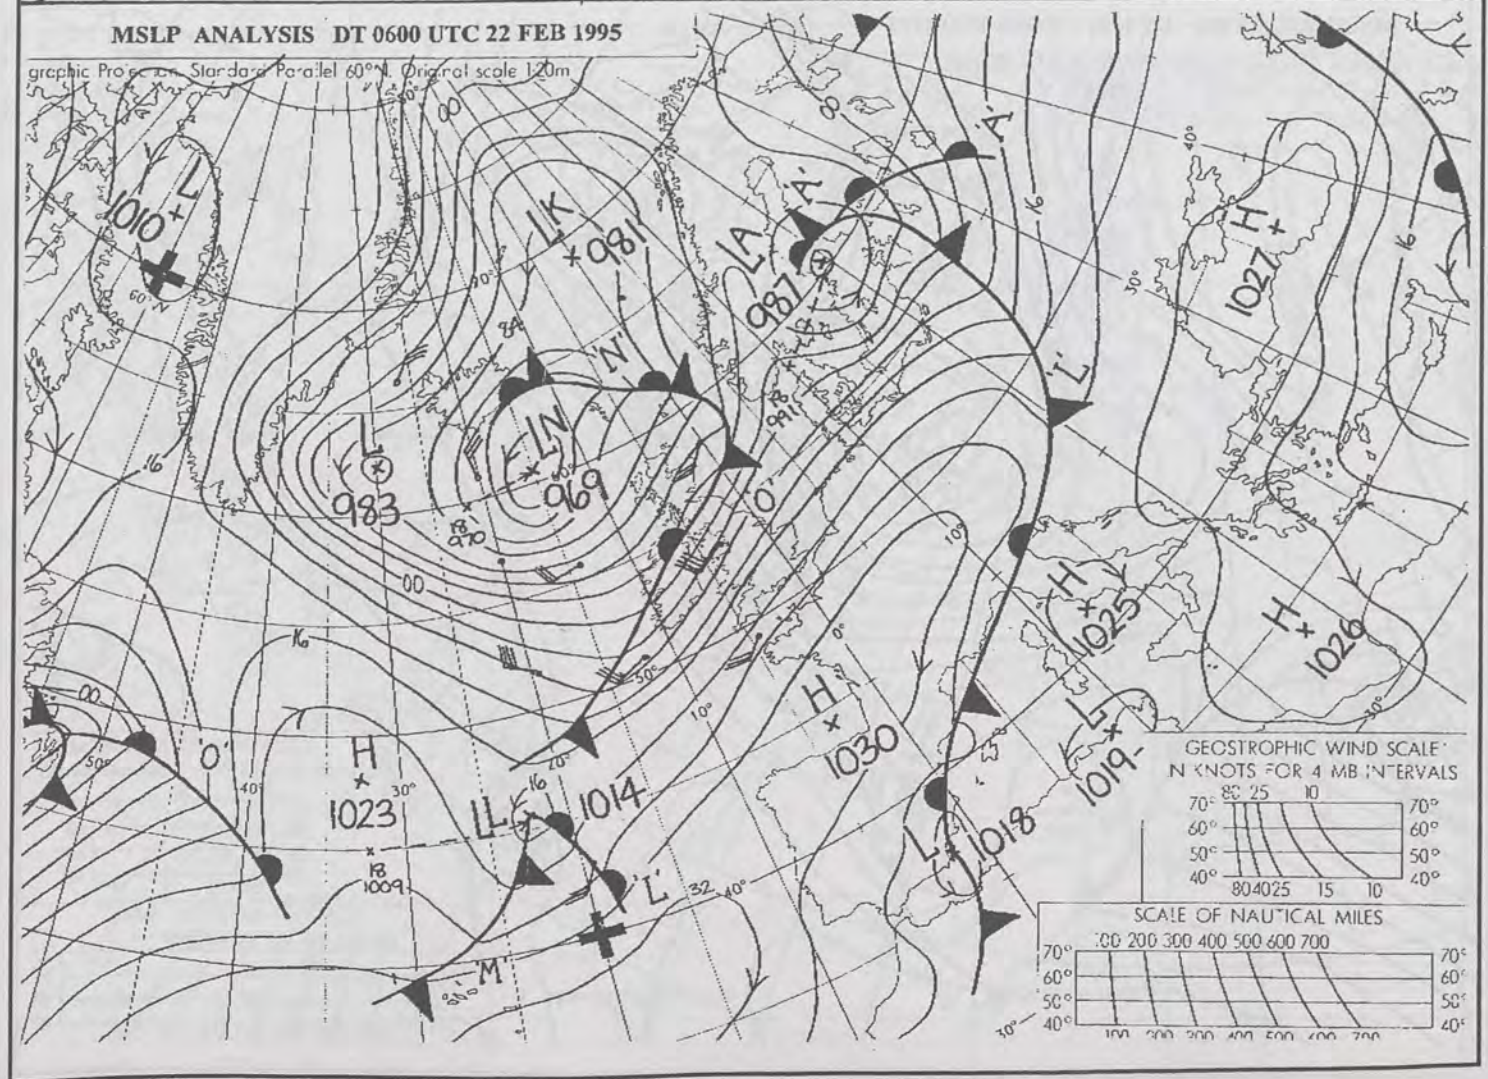 MSLP ANALYSIS DT 0600 UTC 22 FEB 1995
graphic Projection Standard Parallel 60°N. Original scale 1:20m
L
1010
60°N
LK
981
LA
987
'A'
'A'
H
1027
16
16
8
00
40°
30°
70°
'N'
LN
969
L
983
18
970
18
991
'L'
'O'
16
00
16
00
'O'
50°
40°
30°
20°
10°
0°
10°
50°
H
1023
18
1009
LL
16
1014
'L'
'M'
32
40°
H
1030
H
1025
H
1026
L
1019
L
1018
30°
30°
GEOSTROPHIC WIND SCALE
IN KNOTS FOR 4 MB INTERVALS
80 25 10
70° 70°
60° 60°
50° 50°
40° 40°
80 40 25 15 10
SCALE OF NAUTICAL MILES
100 200 300 400 500 600 700
70° 70°
60° 60°
50° 50°
40° 40°
100 200 300 400 500 600 700